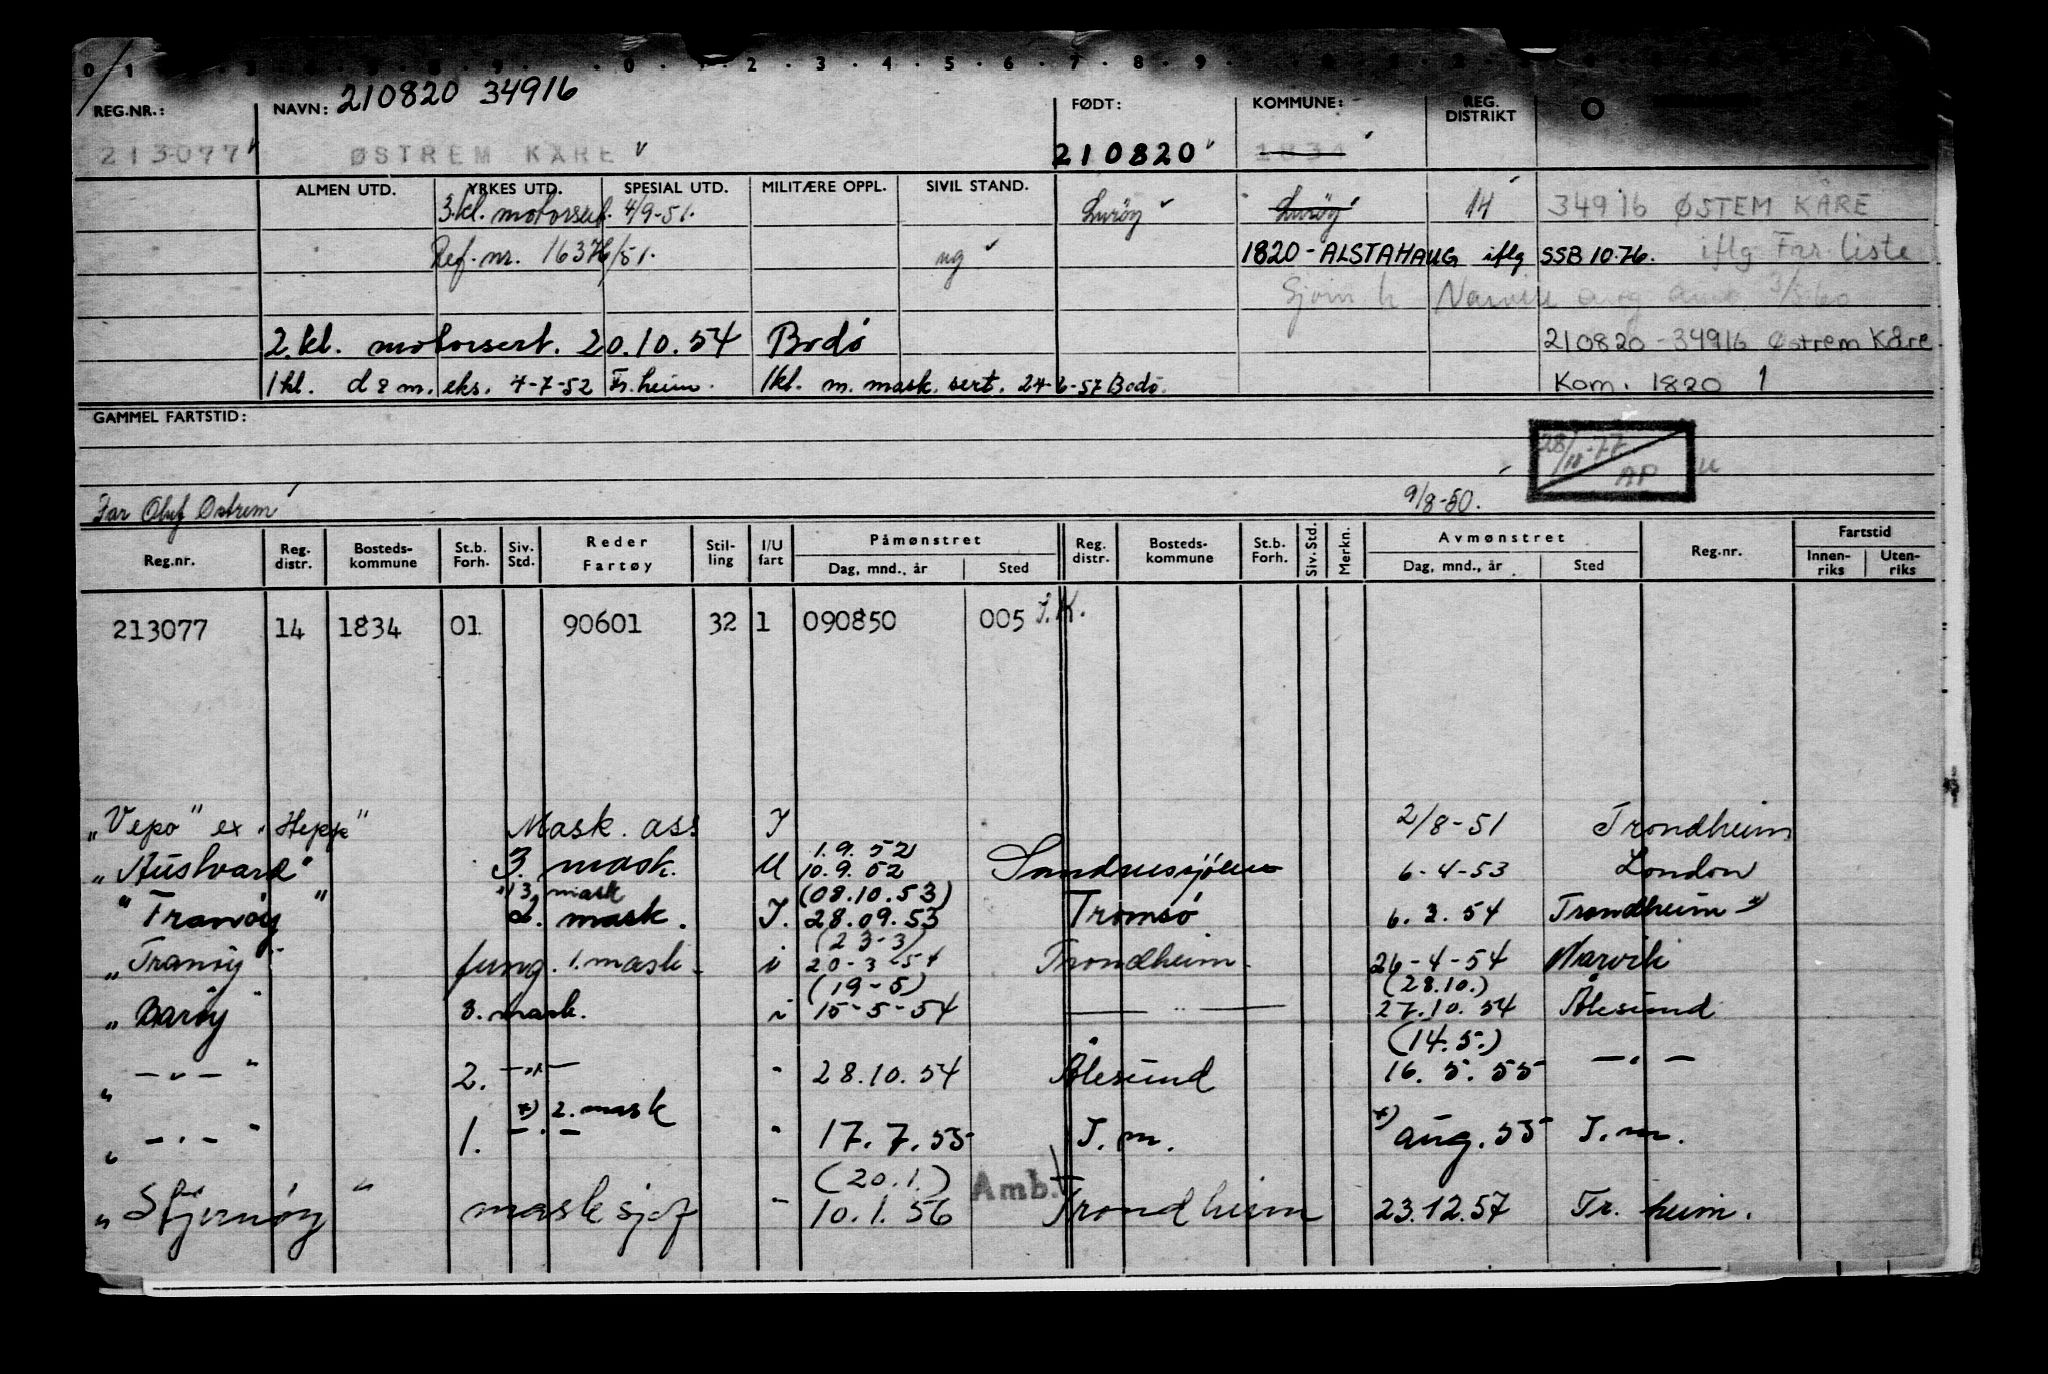 210820 34916
REG.NR.: NAVN: FØDT: KOMMUNE: REG. DISTRIKT
213077 ØSTREM KÅRE 210820 1834
ALMEN UTD. YRKES UTD. SPESIAL UTD. MILITÆRE OPPL. SIVIL STAND.
3.kl. motorsert. 4/9-51. Lurøy Lurøy 14 34916 ØSTEM KÅRE
Ref. nr. 16376/51. ug 1820-ALSTAHAUG iflg SSB 10.76. iflg Frr. liste
Narvik
2.kl. motorsert. 20.10.54 Bodø 210820-34916 Østrem Kåre
1kl. d & m. eks. 4-7-52 Tr.heim. 1kl. m. mask. sert. 24-6-57 Bodø. Kom. 1820 1
GAMMEL FARTSTID:
28/10-77
AP
Far Oluf Østrem 9/8-50.
Reg.nr. Reg. distr. Bosteds-kommune St.b. Forh. Siv. Std. Reder Fartøy Stil-ling I/U fart Påmønstret Dag, mnd., år Sted Reg. distr. Bosteds-kommune St.b. Forh. Siv. Std. Merkn. Avmønstret Dag, mnd., år Sted Reg.nr. Fartstid Innen-riks Uten-riks
213077 14 1834 01 90601 32 1 090850 005 J.K.
"Vepo" ex "Hepp" Mask. ass I 2/8-51 Trondheim
1.9.52
"Austvard" 3. mask. U 10.9.52 Sandnessjøen 6-4-53 London
*) 3 mask (08.10.53)
"Tranøy" 2. mask. I. 28.09.53 Tromsø 6.2.54 Trondheim *)
(23-3)
"Tranøy" fung. 1. mask. i 20-3-54 Trondheim 26-4-54 Narvik
(19-5) (28.10.)
"Barøy" 3. mask. i 15-5-54 — " — 27.10.54 Ålesund
(14.5.)
" — " — " 2. — " — " 28.10.54 Ålesund 16.5.55 — " —
*) 2. mask
" — " — " 1. — " — " 17.7.55 T.m. *) aug. 55 T.m.
(20.1.) Amb.
"Stjernøy" mask sjef " 10.1.56 Trondheim 23.12.57 Tr. heim.